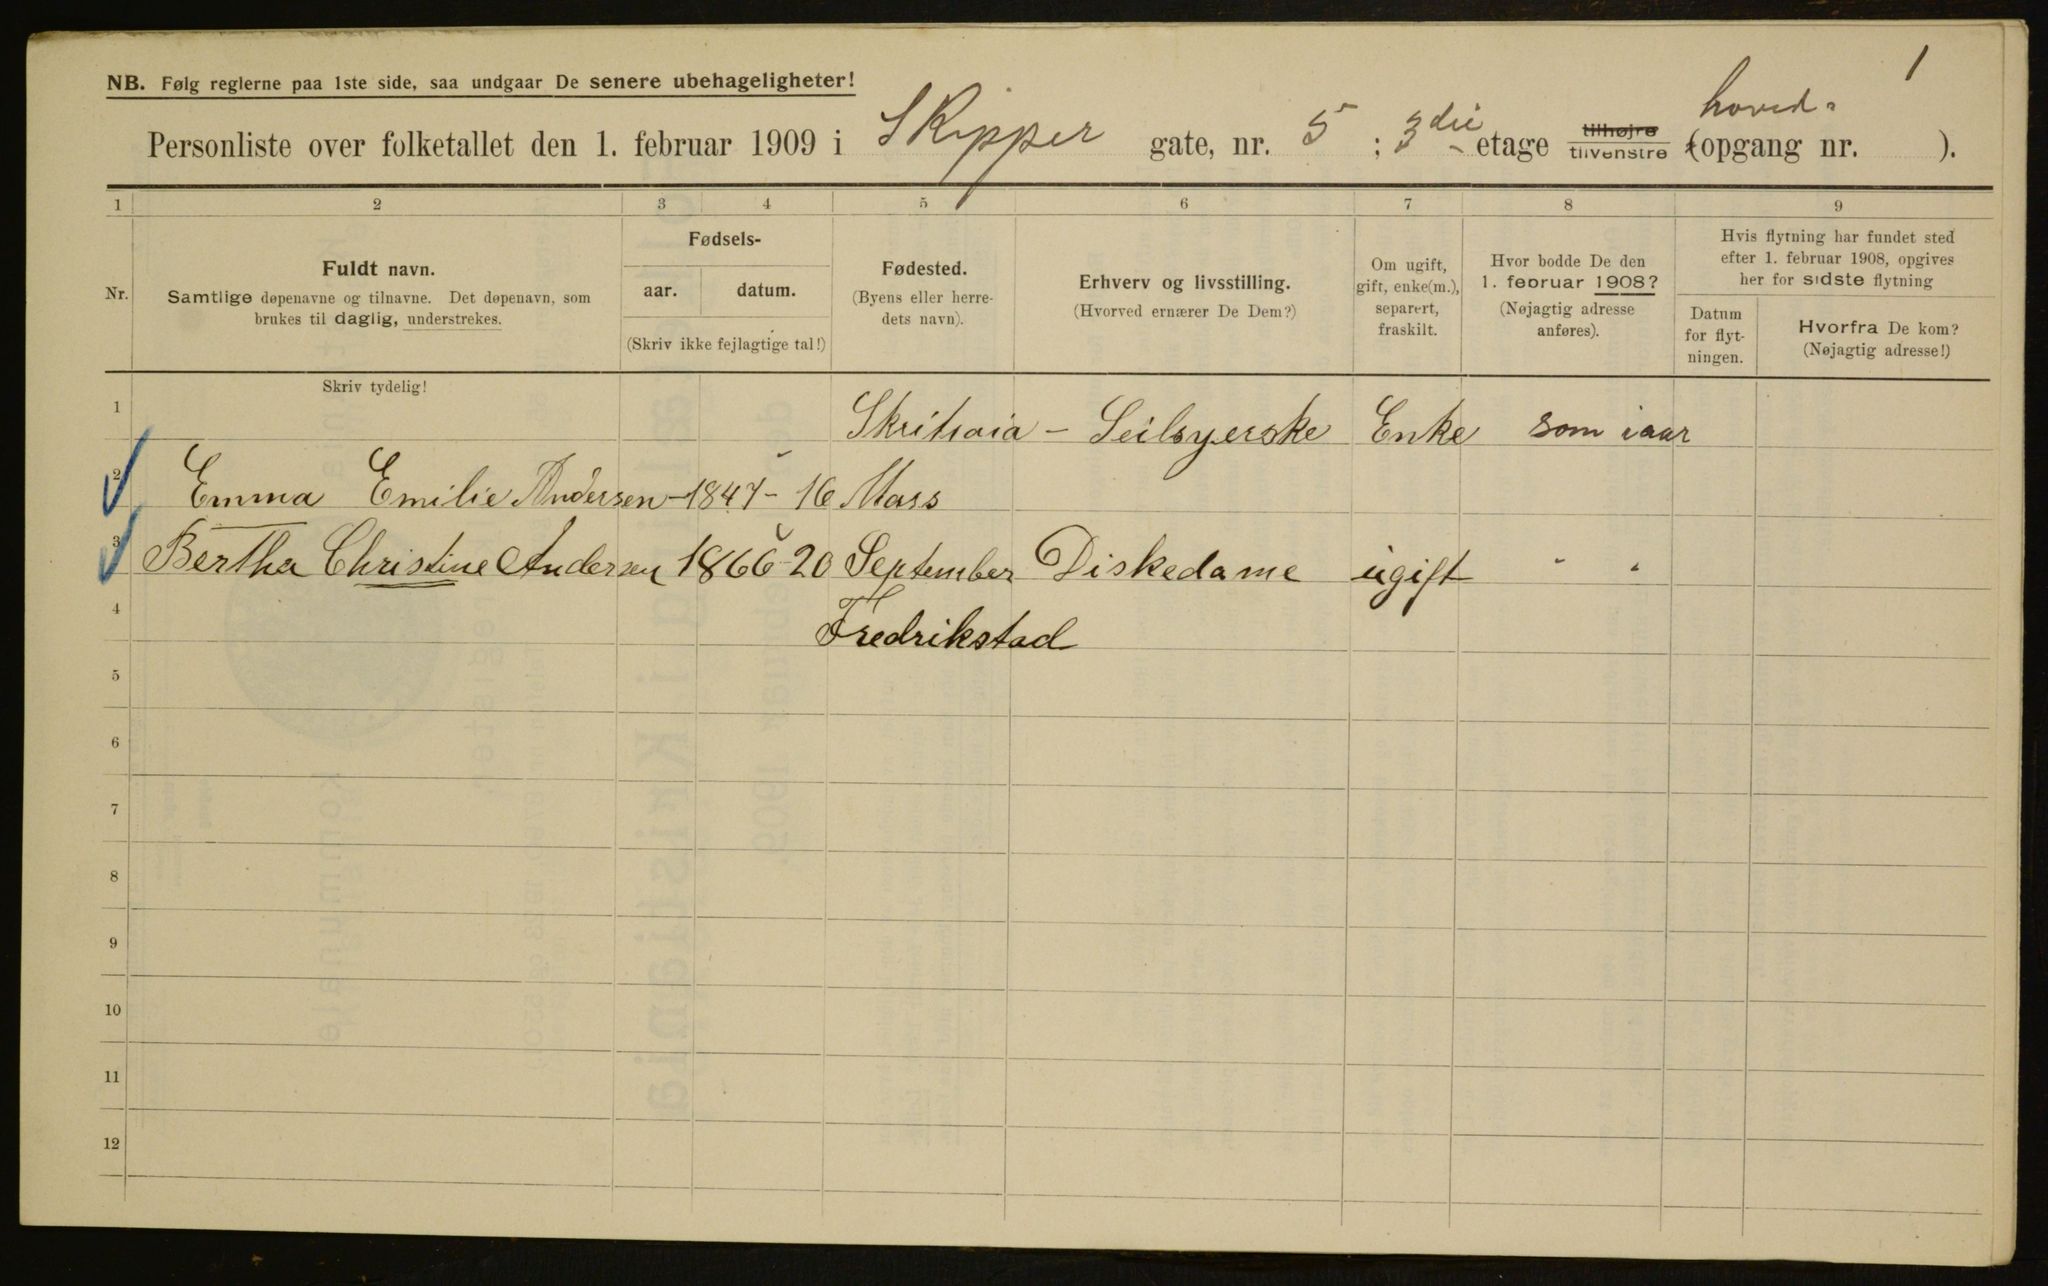 1
NB. Følg reglerne paa 1ste side, saa undgaar De senere ubehageligheter!
hoved-
Personliste over folketallet den 1. februar 1909 i Skipper gate, nr. 5 ; 3die etage tilhøjre tilvenstre (opgang nr. ).
1 2 3 4 5 6 7 8 9
Nr.
Fuldt navn.
Samtlige døpenavne og tilnavne. Det døpenavn, som
brukes til daglig, understrekes.
Fødsels-
aar. datum.
(Skriv ikke fejlagtige tal!)
Fødested.
(Byens eller herre-
dets navn).
Erhverv og livsstilling.
(Hvorved ernærer De Dem?)
Om ugift,
gift, enke(m.),
separert,
fraskilt.
Hvor bodde De den
1. februar 1908?
(Nøjagtig adresse
anføres).
Hvis flytning har fundet sted
efter 1. februar 1908, opgives
her for sidste flytning
Datum
for flyt-
ningen.
Hvorfra De kom?
(Nøjagtig adresse!)
Skriv tydelig!
1 Seilsyerske Enke som iaar
2 Emma Emilie Andersen - 1847 - 16 Mars
3 Bertha Christine Andersen 1866 - 20 September Diskedame ugift " "
4 Fredrikstad
5
6
7
8
9
10
11
12